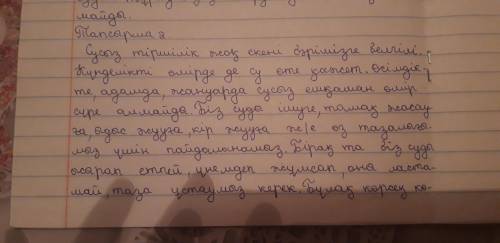 майды.
Тапсырма 2
Сусыз тіршілік жоқ екені бәрімізге белгілі.
Күнделікті өмірде де су өте қажет. Өсімдік-
те, адамда, жануарда сусыз ешқашан өмір
сүре алмайды. Біз суды ішуге, тамақ жасау-
ға, ыдыс жууға, кір жууда ж/е өз тазалығы-
мыз үшін пайдаланамыз. Бірақ та біз суды
ысырап етпей, үнемдеп жұмсап, оны ласта-
май, таза ұстауымыз керек. Бұлақ көрсең кө-